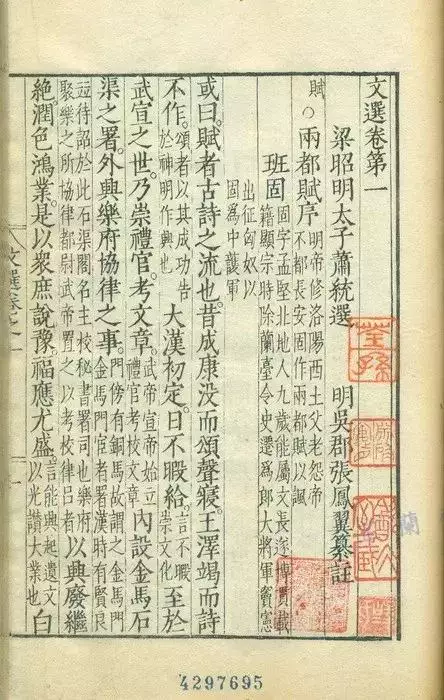 文選卷第一
梁昭明太子蕭統選　明吳郡張鳳翼纂註
賦○兩都賦序明帝修洛陽西土父老怨帝不都長安固作兩都賦以諷
班固固字孟堅北地人九歲能屬文長遂博貫載籍顯宗時除蘭臺令史遷爲郎大將軍竇憲
出征匈奴以固爲中護軍
或曰。賦者古詩之流也。昔成康没而頌聲寢。王澤竭而詩
不作。頌者以其成功告於神明作興也大漢初定。日不暇給。言不暇崇文化至於
武宣之世。乃崇禮官。考文章。武帝宣帝始立禮官考校文章內設金馬石
渠之署。外興樂府協律之事。門傍有銅馬故謂之金馬門金馬門宦者署漢時有賢良
竝待詔於此石渠閣名主校秘書署司也樂府聚樂之所協律都尉武帝置之以考校律呂者以興廢繼
絕。潤色鴻業。是以衆庶說豫。福應尤盛。言能興起遺文以光讚大業也白
文選卷之一
4297695